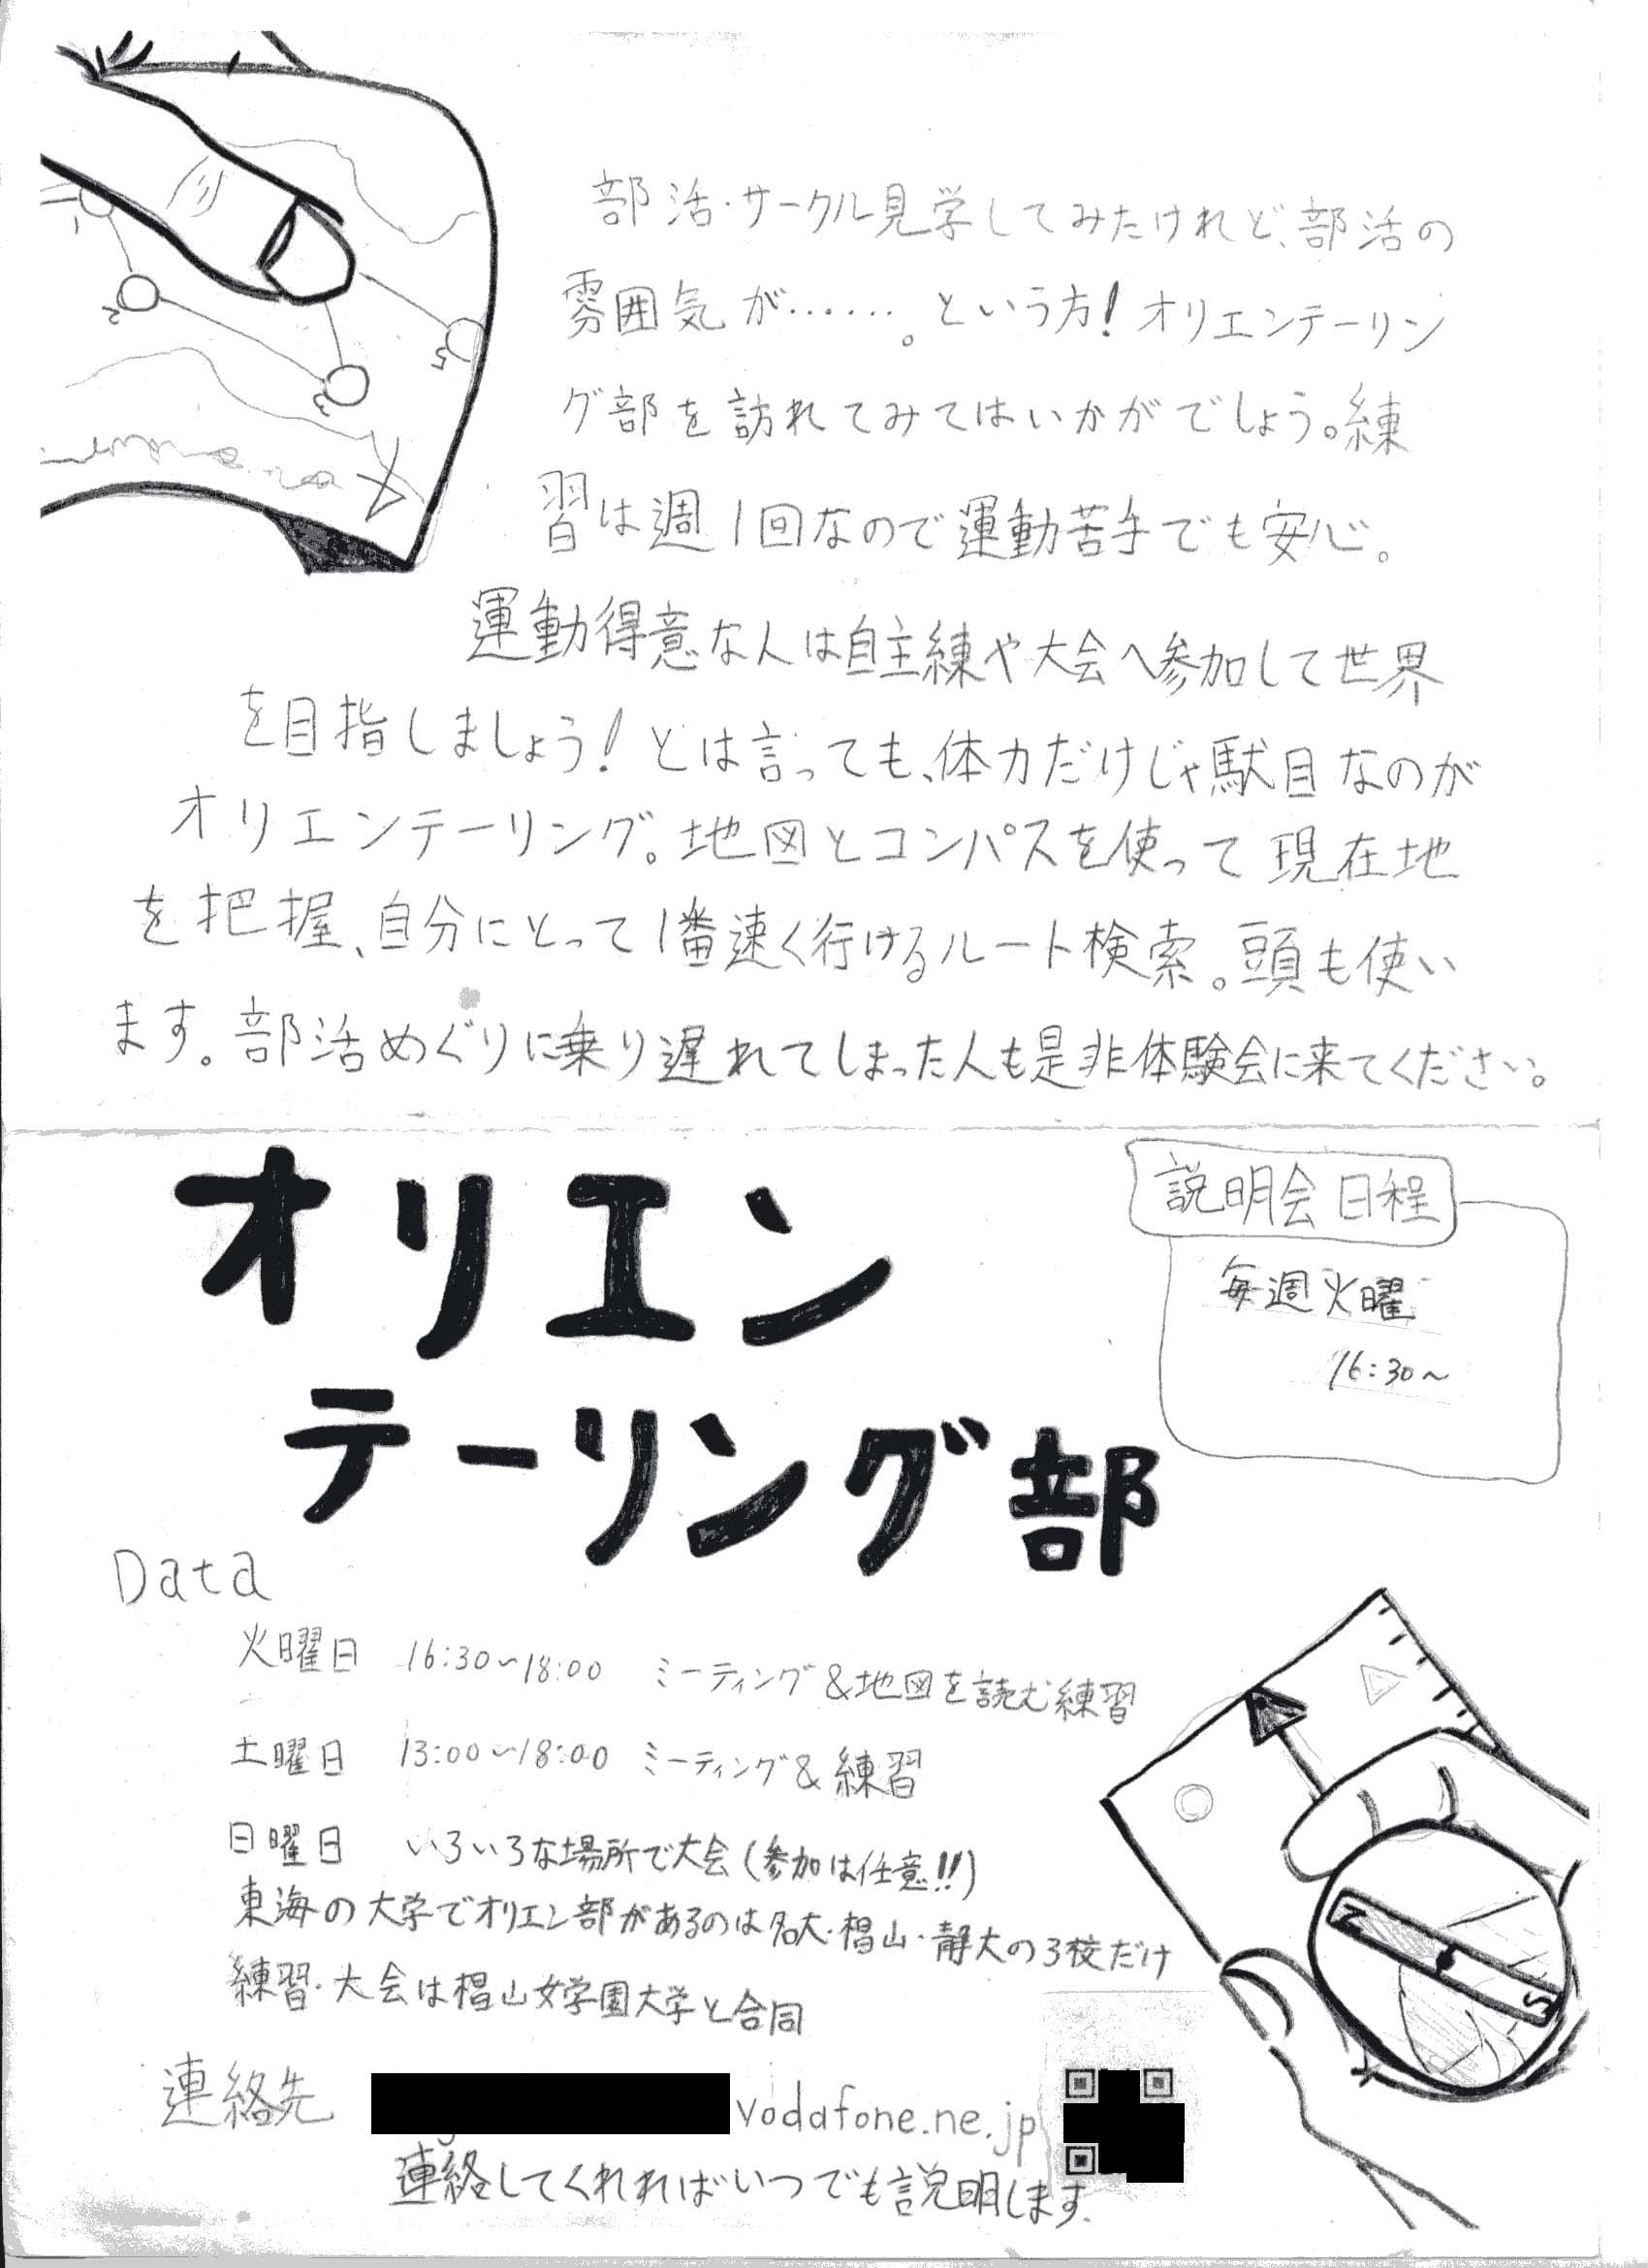 部活・サークル見学してみたけれど、部活の
雰囲気が……。という方！オリエンテーリン
グ部を訪れてみてはいかがでしょう。練
習は週1回なので運動苦手でも安心。
運動得意な人は自主練や大会へ参加して世界
を目指しましょう！とは言っても、体力だけじゃ駄目なのが
オリエンテーリング。地図とコンパスを使って現在地
を把握、自分にとって1番速く行けるルート検索。頭も使い
ます。部活めぐりに乗り遅れてしまった人も是非体験会に来てください。
オリエン
テーリング部
説明会日程
毎週火曜
16:30〜
Data
火曜日 16:30〜18:00 ミーティング&地図を読む練習
土曜日 13:00〜18:00 ミーティング&練習
日曜日 いろいろな場所で大会(参加は任意!!)
東海の大学でオリエン部があるのは名大・椙山・静大の3校だけ
練習・大会は椙山女学園大学と合同
連絡先 vodafone.ne.jp
連絡してくれればいつでも説明します.
1
2
3
5
N
S